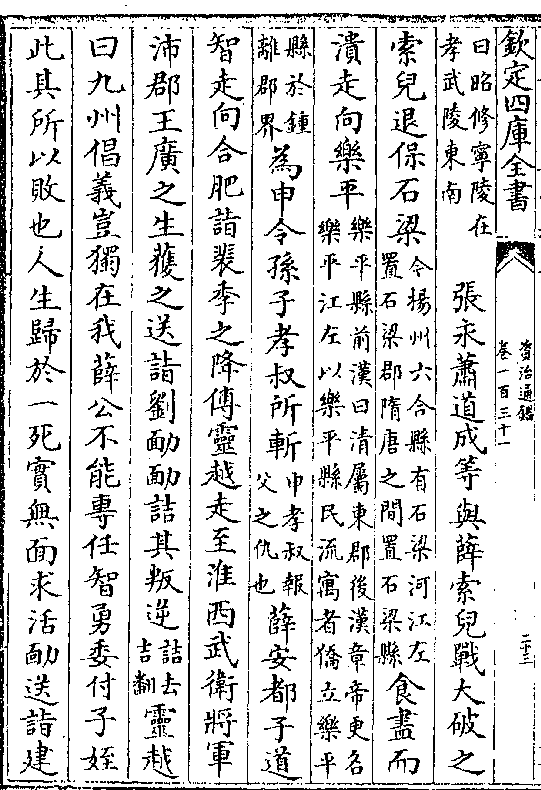 欽定四庫全書
資治通鑑
卷一百三十一
二十三
曰昭修寧陵在
孝武陵東南
張永蕭道成等與薛索兒戰大破之
索兒退保石梁
令揚州六合縣有石梁河江左
置石梁郡隋唐之間置石梁縣
食盡而
潰走向樂平
樂平縣前漢曰清屬東郡後漢章帝更名
樂平江左以樂平縣民流寓者僑立樂平
縣於鍾
離郡界
為申令孫子孝叔所斬
申孝叔報
父之仇也
薛安都子道
智走向合肥詣裴季之降傅靈越走至淮西武衛將軍
沛郡王廣之生獲之送詣劉勔勔詰其叛逆
詰去
吉翻
靈越
曰九州倡義豈獨在我薛公不能專任智勇委付子姪
此其所以敗也人生歸於一死實無面求活勔送詣建